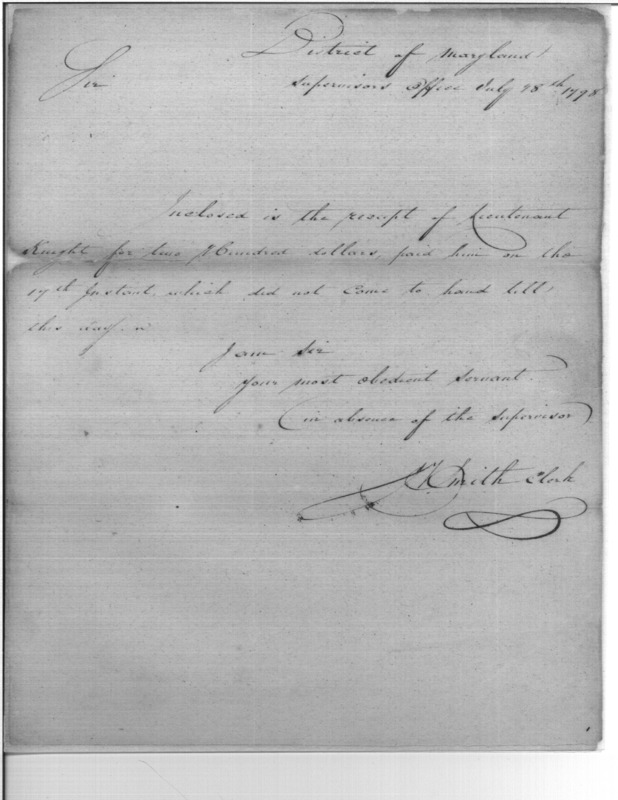 District of Maryland
Sir
Supervisors Office July 28th 1798
Inclosed is the receipt of Lieutenant
Knight for two Hundred dollars, paid him on the
17th Instant which did not Come to hand till
this day.
I am Sir
Your most obedient Servant
(in absence of the Supervisor)
Smith Clerk